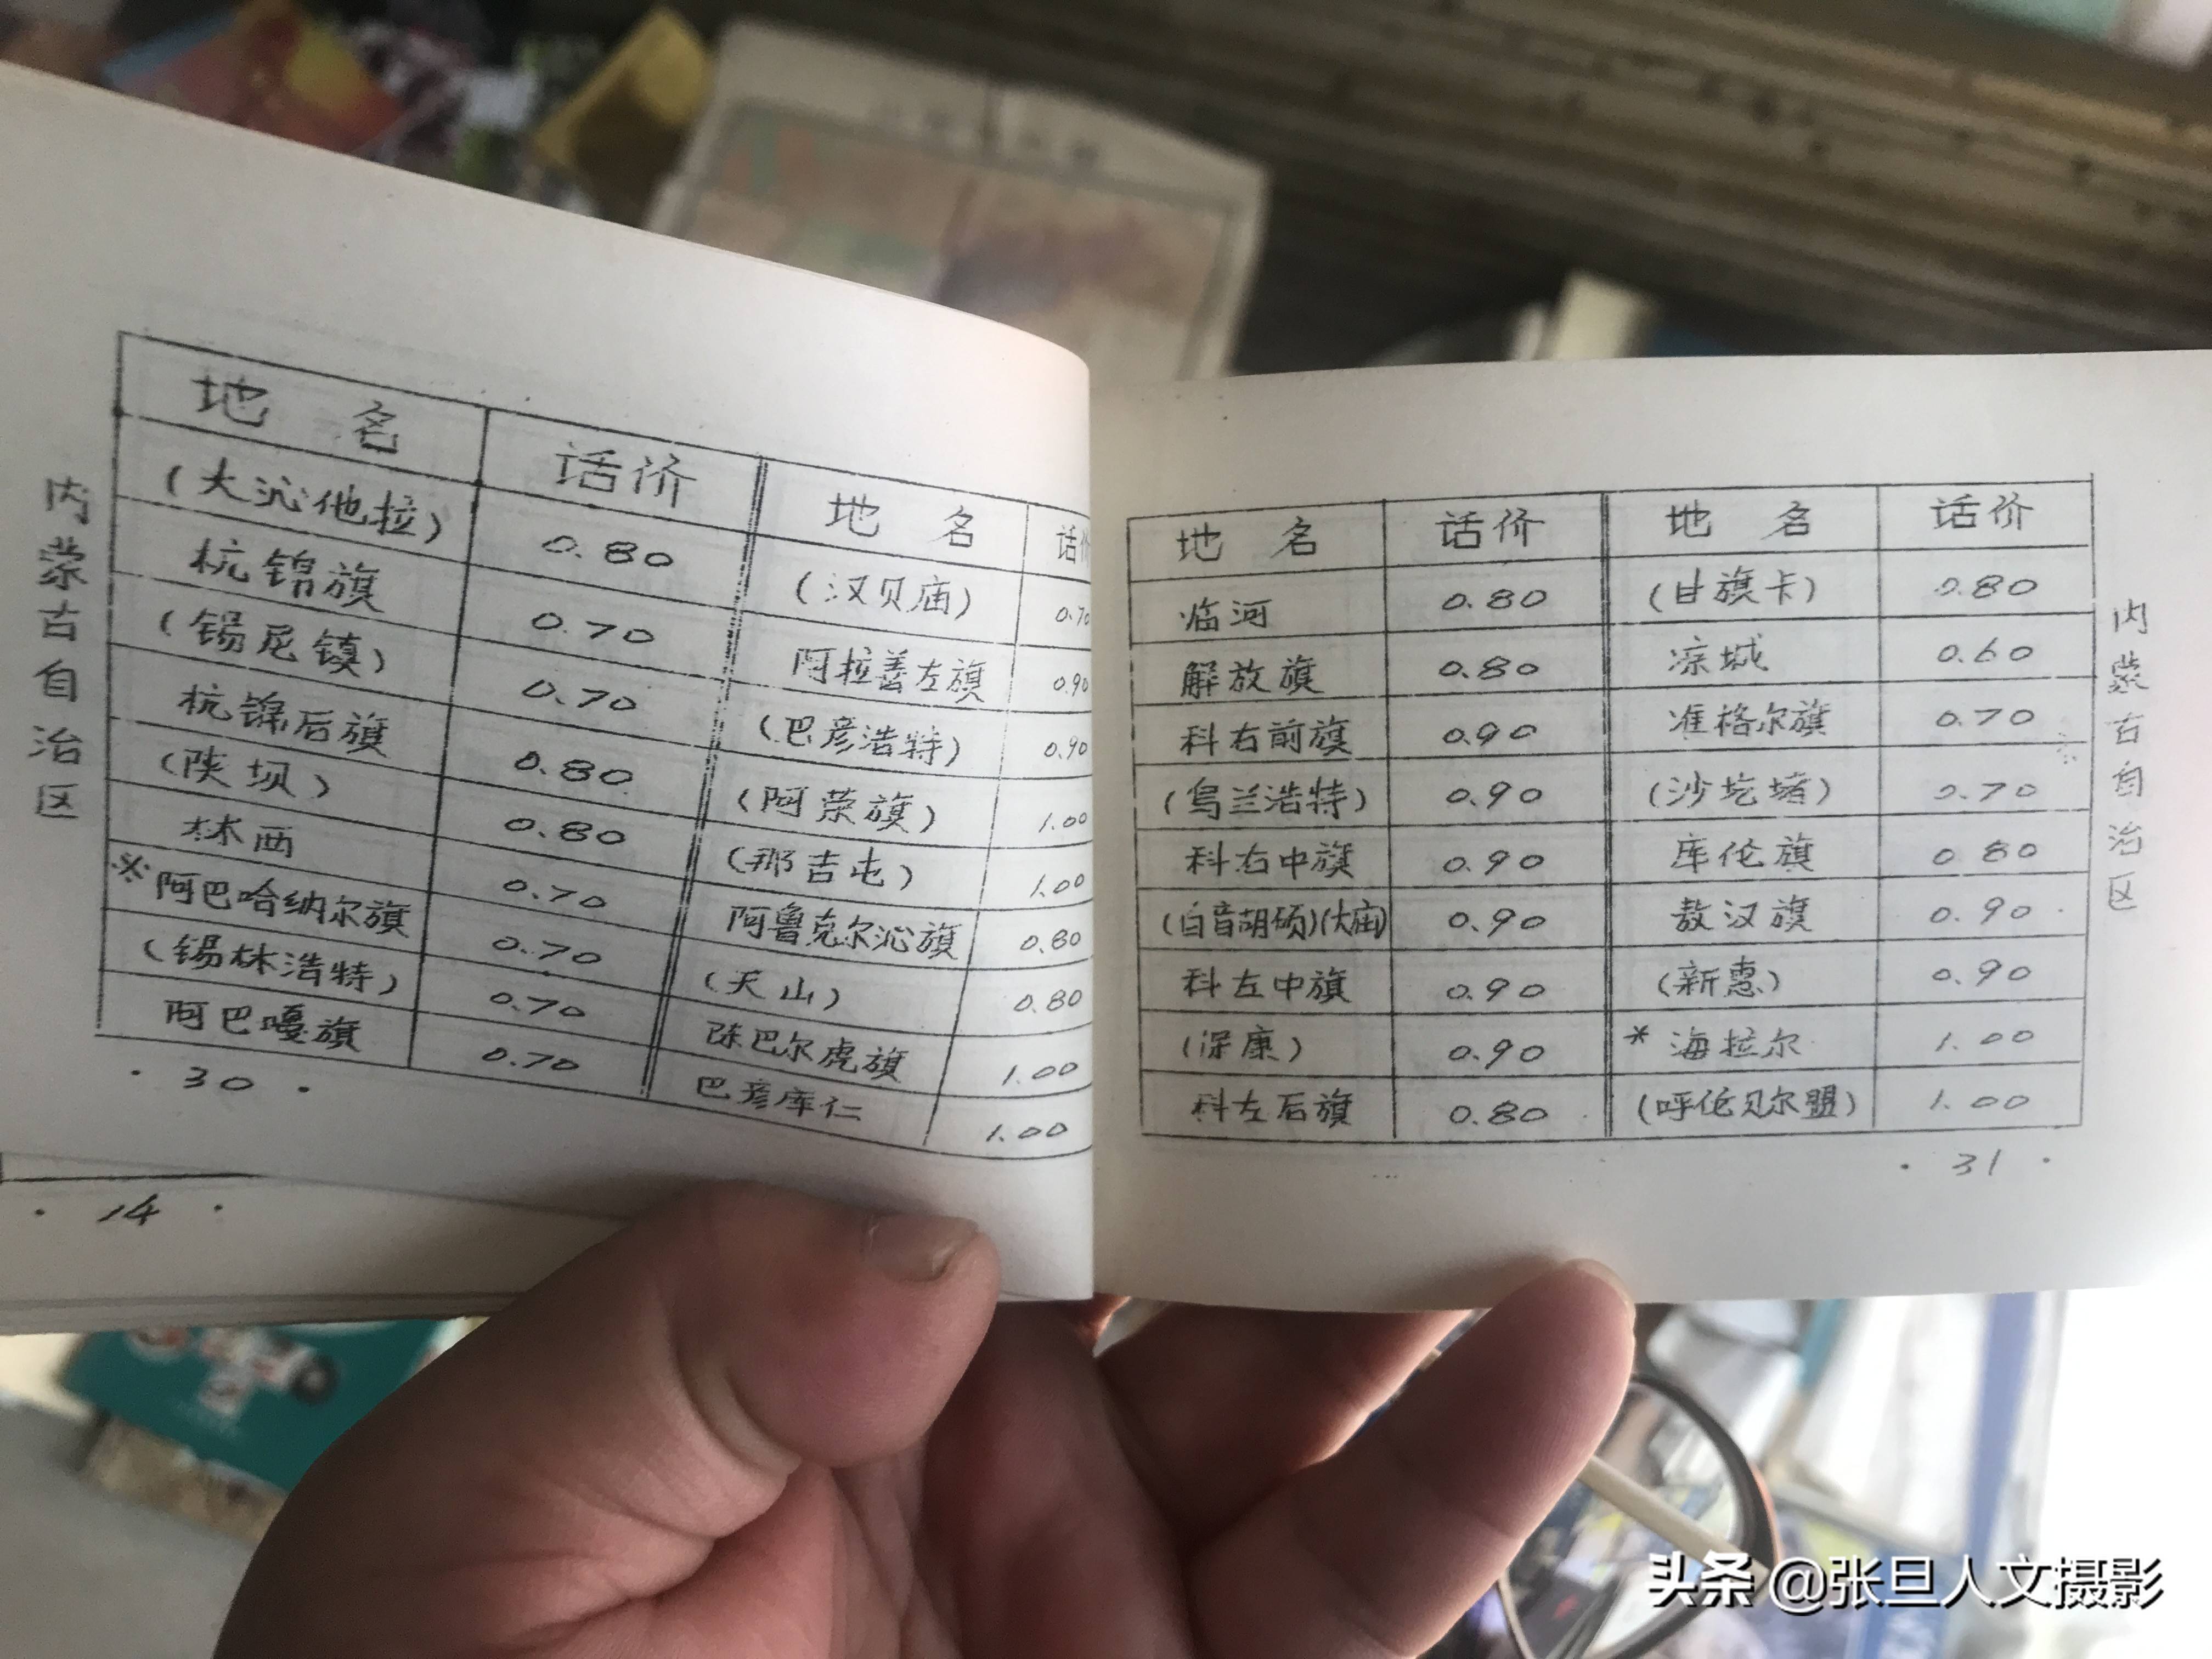 内蒙古自治区
地 名 话价 地 名 话价
(大沁他拉) 0.80 (汉贝庙) 0.70
杭锦旗 0.70 阿拉善左旗 0.90
(锡尼镇) 0.70 (巴彦浩特) 0.90
杭锦后旗 0.80 (阿荣旗) 1.00
(陕坝) 0.80 (那吉屯) 1.00
林西 0.70 阿鲁克尔沁旗 0.80
※阿巴哈纳尔旗 0.70 (天山) 0.80
(锡林浩特) 0.70 陈巴尔虎旗 1.00
阿巴嘎旗 0.70 巴彦库仁 1.00
· 30 ·
· 14 ·
地 名 话价 地 名 话价
临河 0.80 (甘旗卡) 0.80
解放旗 0.80 凉城 0.60
科右前旗 0.90 准格尔旗 0.70
(乌兰浩特) 0.90 (沙圪堵) 0.70
科右中旗 0.90 库伦旗 0.80
(白音胡硕)(大庙) 0.90 敖汉旗 0.90
科左中旗 0.90 (新惠) 0.90
(保康) 0.90 *海拉尔 1.00
科左后旗 0.80 (呼伦贝尔盟) 1.00
内蒙古自治区
· 31 ·
头条 @张旦人文摄影